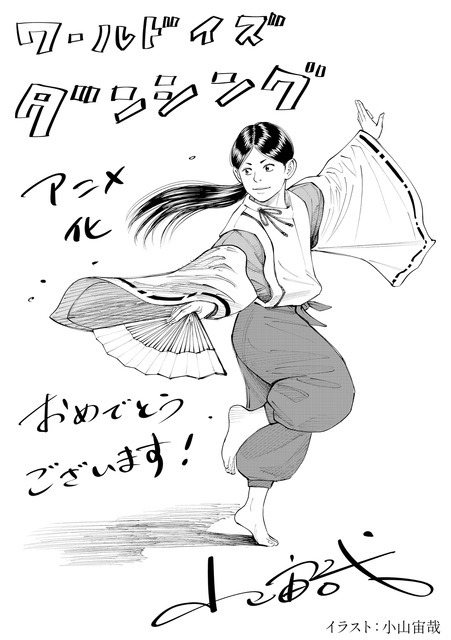 ワールドイズ
ダンシング
アニメ
化
おめでとう
ございます!
小山宙哉
イラスト:小山宙哉